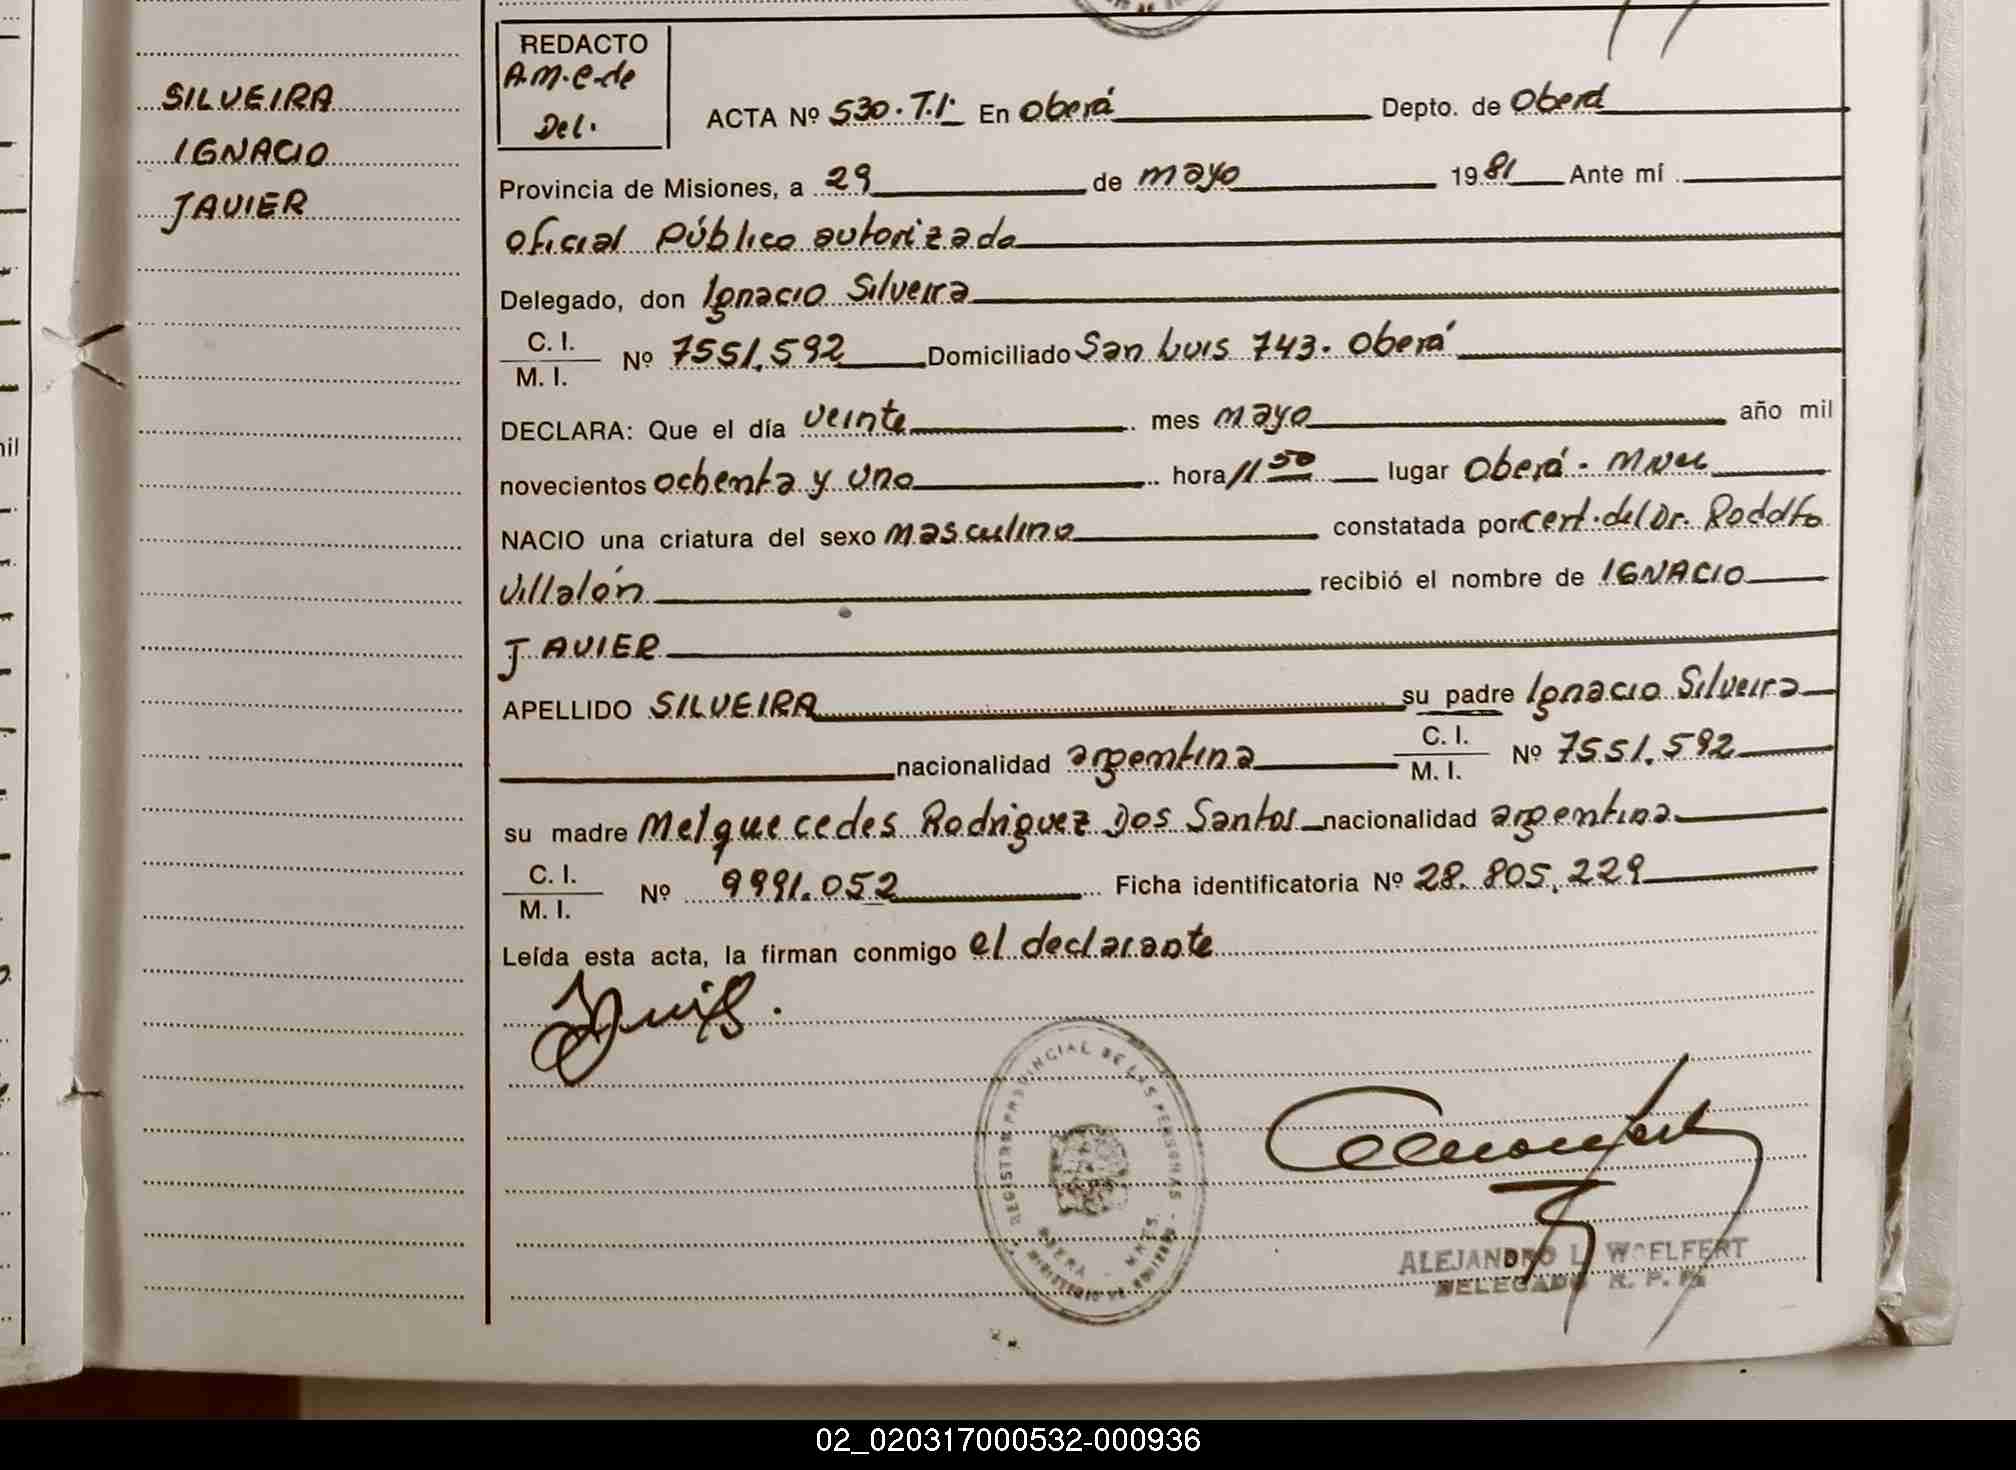 SILVEIRA
IGNACIO
JAVIER
REDACTO
A.M.C. de
Del.
ACTA Nº 530. T.I. En Oberá Depto. de Oberá
Provincia de Misiones, a 29 de mayo 1981 Ante mí
Oficial Público autorizado
Delegado, don Ignacio Silveira
C. I.
M. I. Nº 7551.592 Domiciliado San Luis 743. Oberá
DECLARA: Que el día veinte mes mayo año mil
novecientos ochenta y uno hora 11 50 lugar Oberá - Mnes
NACIO una criatura del sexo masculino constatada por cert. del Dr. Rodolfo
Villalón recibió el nombre de IGNACIO
JAVIER
APELLIDO SILVEIRA su padre Ignacio Silveira
nacionalidad argentina C. I.
M. I. Nº 7551.592
su madre Melquecedes Rodriguez Dos Santos nacionalidad argentina
C. I.
M. I. Nº 9991.052 Ficha identificatoria Nº 28.805.229
Leída esta acta, la firman conmigo el declarante
REGISTRO PROVINCIAL DE LAS PERSONAS
OBERA - MNES.
MINISTERIO DE GOBIERNO
ALEJANDRO L. WOELFERT
DELEGADO R. P. P.
02_020317000532-000936